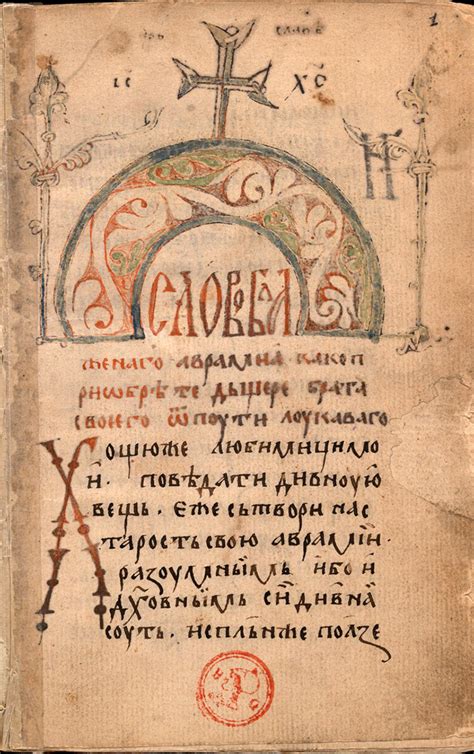 1
ІС ХС
СЛОВО О БЛА
женаго аврамиꙗ како п
риѡбрѣте дъщере брата
своего ѿ поути лоукаваго
Хощюже любимици мо
и · повѣдати дивноую
вещь · еже сътвори на с
тарость свою аврамїи ·
разоумныимь ибо и
дх҃овныимь сїи дивна
соуть · исплънь же ползе